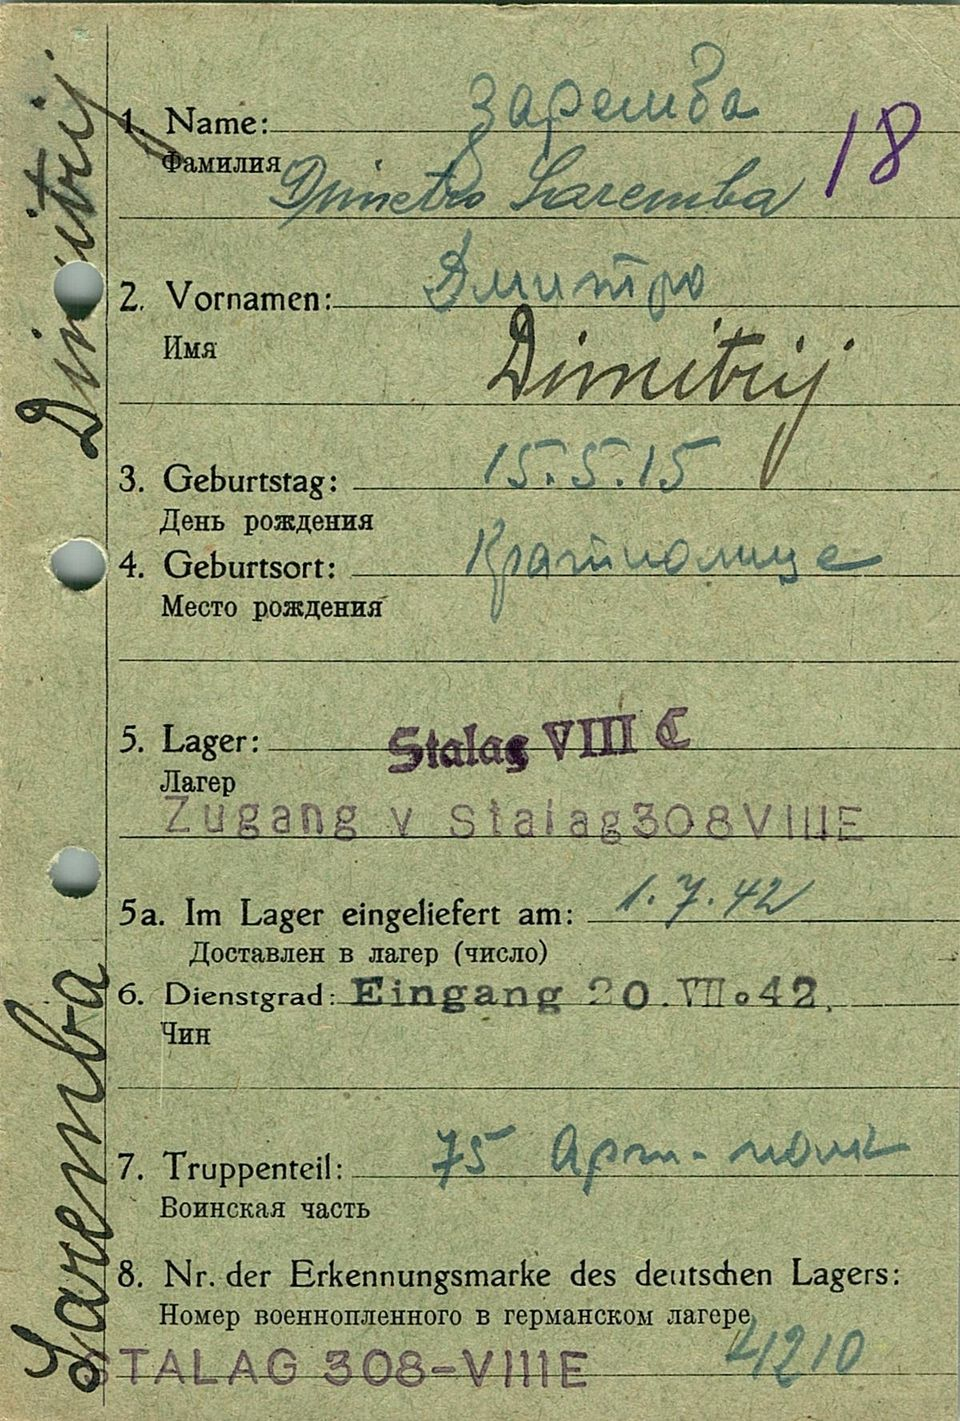 1. Name: Заремба
18
Фамилия
Dimetro Saremba
2. Vornamen: Дмитро
Имя
Dimitrij
3. Geburtstag: 15.5.15
День рождения
4. Geburtsort:
Место рождения
5. Lager: Stalag VIII C
Лагер
Zugang v Stalag308VIIIE
5a. Im Lager eingeliefert am: 1.7.42
Доставлен в лагер (число)
6. Dienstgrad: Eingang 20.VII.42.
Чин
7. Truppenteil: 75 Арт-полк
Воинская часть
8. Nr. der Erkennungsmarke des deutschen Lagers:
Номер военнопленного в германском лагере
STALAG 308-VIIIE 4210
Saremba Dimitrij